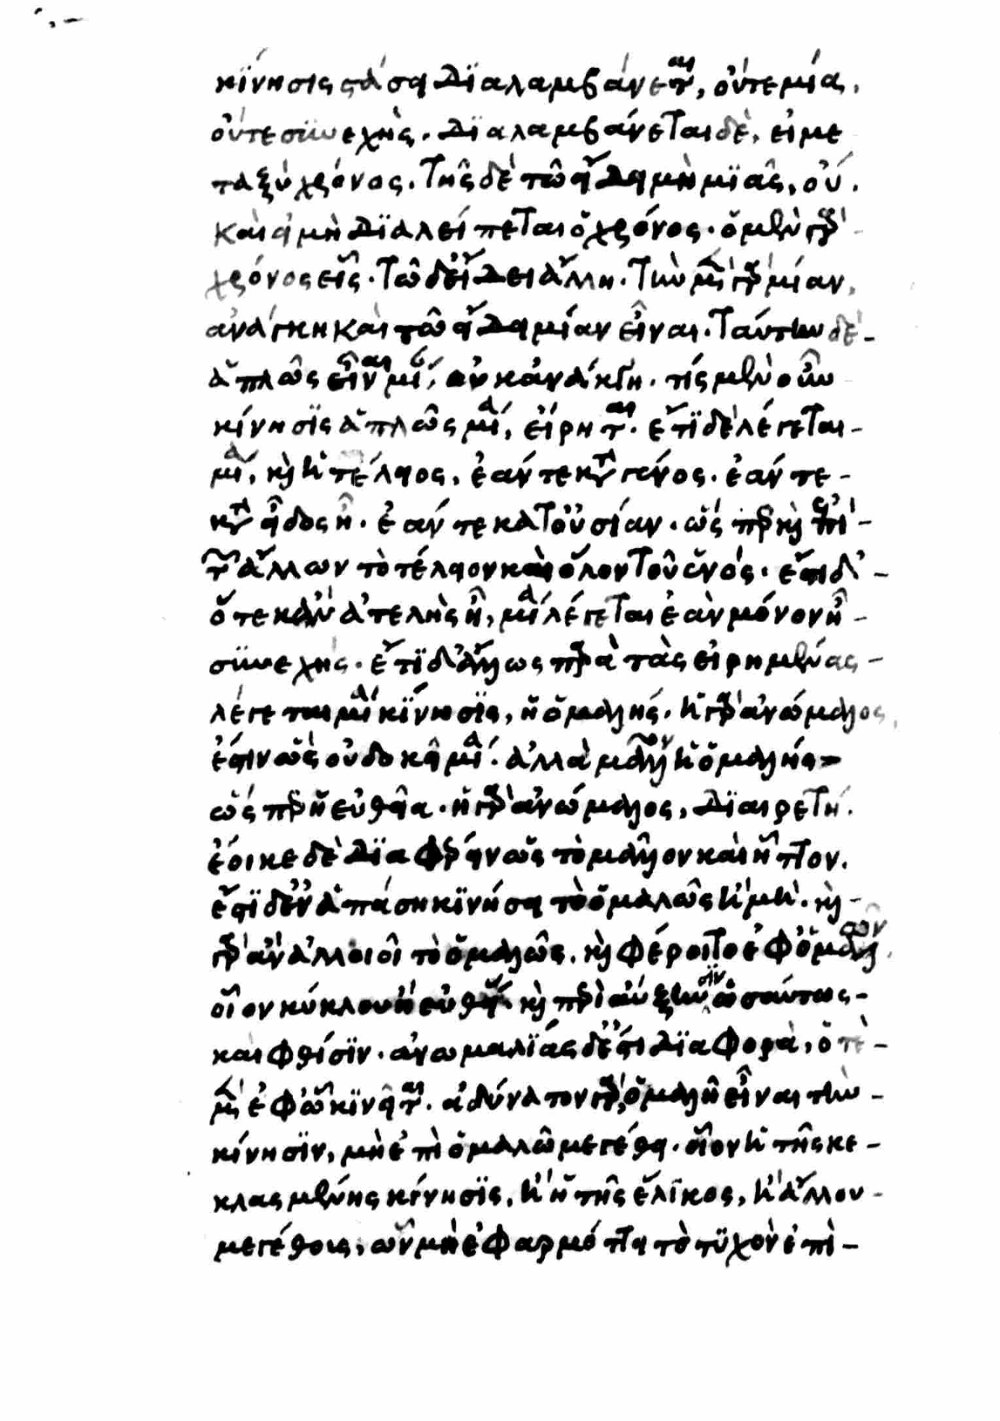 κίνησις στάσει διαλαμβάνεται, οὔτε μία,
οὔτε συνεχής. διαλαμβάνεται δὲ, εἰ με
ταξὺ χρόνος. τῆς δὲ τῶ εἴδει μὴ μιᾶς, οὔ.
καὶ εἰ μὴ διαλείπεται ὁ χρόνος. ὁ μὲν γὰρ
χρόνος εἷς. τῶ δ' εἴδει ἄλλη. τὴν μὲν γὰρ μίαν,
ἀνάγκη καὶ τῶ εἴδει μίαν εἶναι. ταύτην δὲ
ἁπλῶς εἶναι μίαν, οὐκ ἀνάγκη. τίς μὲν οὖν
κίνησις ἁπλῶς μία, εἴρηται. ἔτι δὲ λέγεται
μία, καὶ ἡ τέλειος, ἐάν τε κατὰ γένος. ἐάν τε
κατ' εἶδος ἦ. ἐάν τε κατ' οὐσίαν. ὥσπερ καὶ ἐπὶ
τῶν ἄλλων τὸ τέλειον καὶ ὅλον τοῦ ἑνός. ἔστι δ'
ὅτε κἂν ἀτελὴς ἦ, μία λέγεται ἐὰν μόνον ἦ
συνεχής. ἔτι δ' ἄλλως παρὰ τὰς εἰρημένας
λέγεται μία κίνησις, ἡ ὁμαλής. ἡ γὰρ ἀνώμαλος,
ἔστιν ὡς οὐ δοκεῖ μία. ἀλλὰ μᾶλλον ἡ ὁμαλής
ὥσπερ ἡ εὐθεῖα. ἡ γὰρ ἀνώμαλος, διαιρετή.
ἔοικε δὲ διαφέρειν ὡς τὸ μᾶλλον καὶ ἧττον.
ἔστι δ' ἐν ἁπάση κινήσει τὸ ὁμαλῶς ἢ μή. καὶ
γὰρ ἂν ἀλλοιοῖτο ὁμαλῶς. καὶ φέροιτο ἐφ' ὁμαλοῦ,
οἷον κύκλου ἢ εὐθείας καὶ περὶ αὔξησιν ὡσαύτως
καὶ φθίσιν. ἀνωμαλίας δ' ἔστι διαφορὰ, ὁτὲ
μὲν ἐφ' ὧ κινεῖται. ἀδύνατον γὰρ, ὁμαλῆ εἶναι τὴν
κίνησιν, μὴ ἐπὶ ὁμαλῶ μεγέθει. οἷον ἡ τῆς κε
κλασμένης κίνησις, ἢ ἡ τῆς ἕλικος, ἢ ἄλλου
μεγέθους, ὧν μὴ ἐφαρμόττει τὸ τυχὸν ἐπὶ